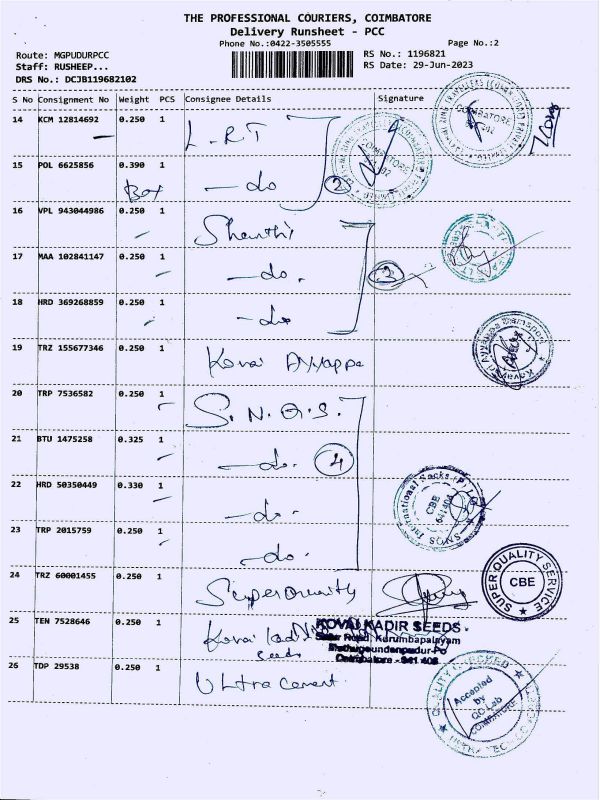 THE PROFESSIONAL COURIERS, COIMBATORE
Delivery Runsheet - PCC
Phone No.:0422-3505555
Page No.:2
Route: MGPUDURPCC
RS No.: 1196821
Staff: RUSHEEP...
RS Date: 29-Jun-2023
DRS No.: DCJB119682102
S No Consignment No Weight PCS Consignee Details Signature
14 KCM 12814692 0.250 1 L.R.T
15 POL 6625856 0.390 1 - do 2
Box
16 VPL 943044986 0.250 1 Shanthi
17 MAA 102841147 0.250 1 - do.
18 HRD 369268859 0.250 1 - do
19 TRZ 155677346 0.250 1 Kovai Ayyappa
20 TRP 7536582 0.250 1 S.N.Q.S.
21 BTU 1475258 0.325 1 - do. 4
22 HRD 50350449 0.330 1 - do.
23 TRP 2015759 0.250 1 - do.
24 TRZ 60001455 0.250 1 Super quality
SUPER QUALITY SERVICE
CBE
25 TEN 7528646 0.250 1 Kovai Kadir
Seeds
KOVAI KADIR SEEDS
Road, Kurumbapalayam
Coimbatore - 641 408
26 TDP 29538 0.250 1 Ultra cement
International Sacks (P)
CBE
QUALITY CHECKED
Accepted
by
QC Lab
COIMBATORE